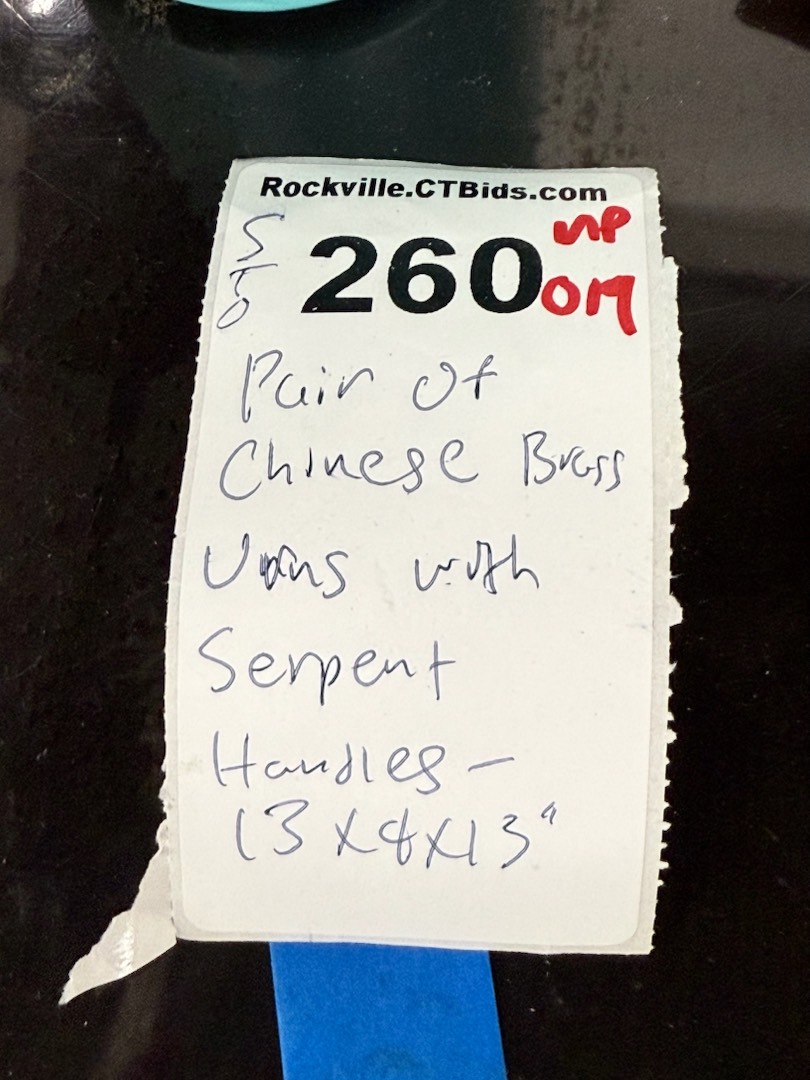 Rockville.CTBids.com
260
UP
OM
Pair of
Chinese Brass
Urns with
Serpent
Handles-
13x8x13"